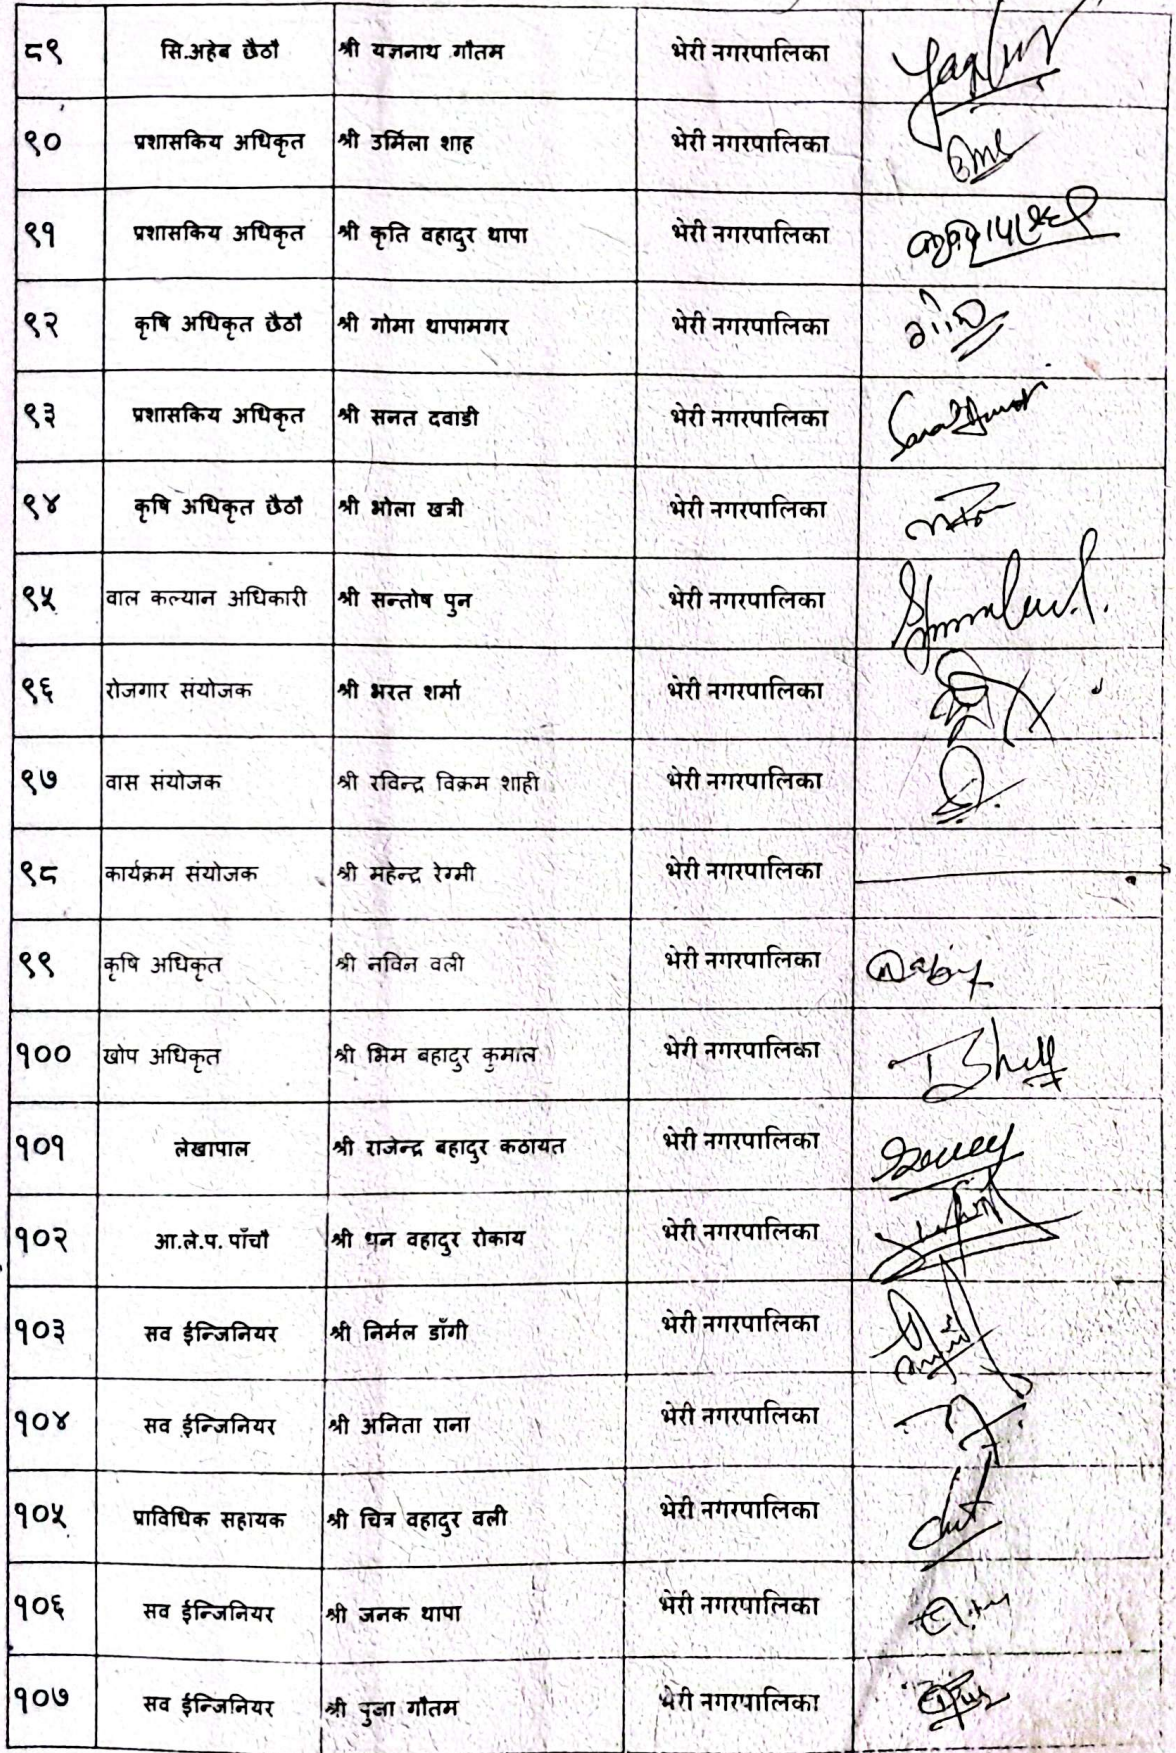 ८९ सि.अहेब छैठौ श्री यज्ञनाथ गौतम भेरी नगरपालिका
९० प्रशासकिय अधिकृत श्री उर्मिला शाह भेरी नगरपालिका
९१ प्रशासकिय अधिकृत श्री कृति वहादुर थापा भेरी नगरपालिका
९२ कृषि अधिकृत छैठौ श्री गोमा थापामगर भेरी नगरपालिका
९३ प्रशासकिय अधिकृत श्री सनत दवाडी भेरी नगरपालिका
९४ कृषि अधिकृत छैठौ श्री भोला खत्री भेरी नगरपालिका
९५ वाल कल्यान अधिकारी श्री सन्तोष पुन भेरी नगरपालिका
९६ रोजगार संयोजक श्री भरत शर्मा भेरी नगरपालिका
९७ वास संयोजक श्री रविन्द्र विक्रम शाही भेरी नगरपालिका
९८ कार्यक्रम संयोजक श्री महेन्द्र रेग्मी भेरी नगरपालिका
९९ कृषि अधिकृत श्री नविन वली भेरी नगरपालिका
१०० खोप अधिकृत श्री भिम बहादुर कुमाल भेरी नगरपालिका
१०१ लेखापाल श्री राजेन्द्र बहादुर कठायत भेरी नगरपालिका
१०२ आ.ले.प. पाँचौ श्री धन वहादुर रोकाय भेरी नगरपालिका
१०३ सव ईन्जिनियर श्री निर्मल डाँगी भेरी नगरपालिका
१०४ सव ईन्जिनियर श्री अनिता राना भेरी नगरपालिका
१०५ प्राविधिक सहायक श्री चित्र वहादुर वली भेरी नगरपालिका
१०६ सव ईन्जिनियर श्री जनक थापा भेरी नगरपालिका
१०७ सव ईन्जिनियर श्री पुजा गौतम भेरी नगरपालिका